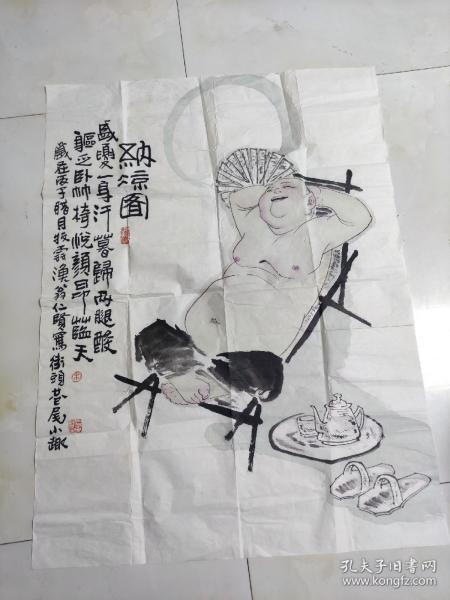 納凉圖
盛夏一身汗暮歸两腿酸
軀乏卧竹椅悦顔昂天
歲在丙子腊月牧雲漁翁仁賢寫街頭巷尾小趣
孔夫子旧书网
www.kongfz.com